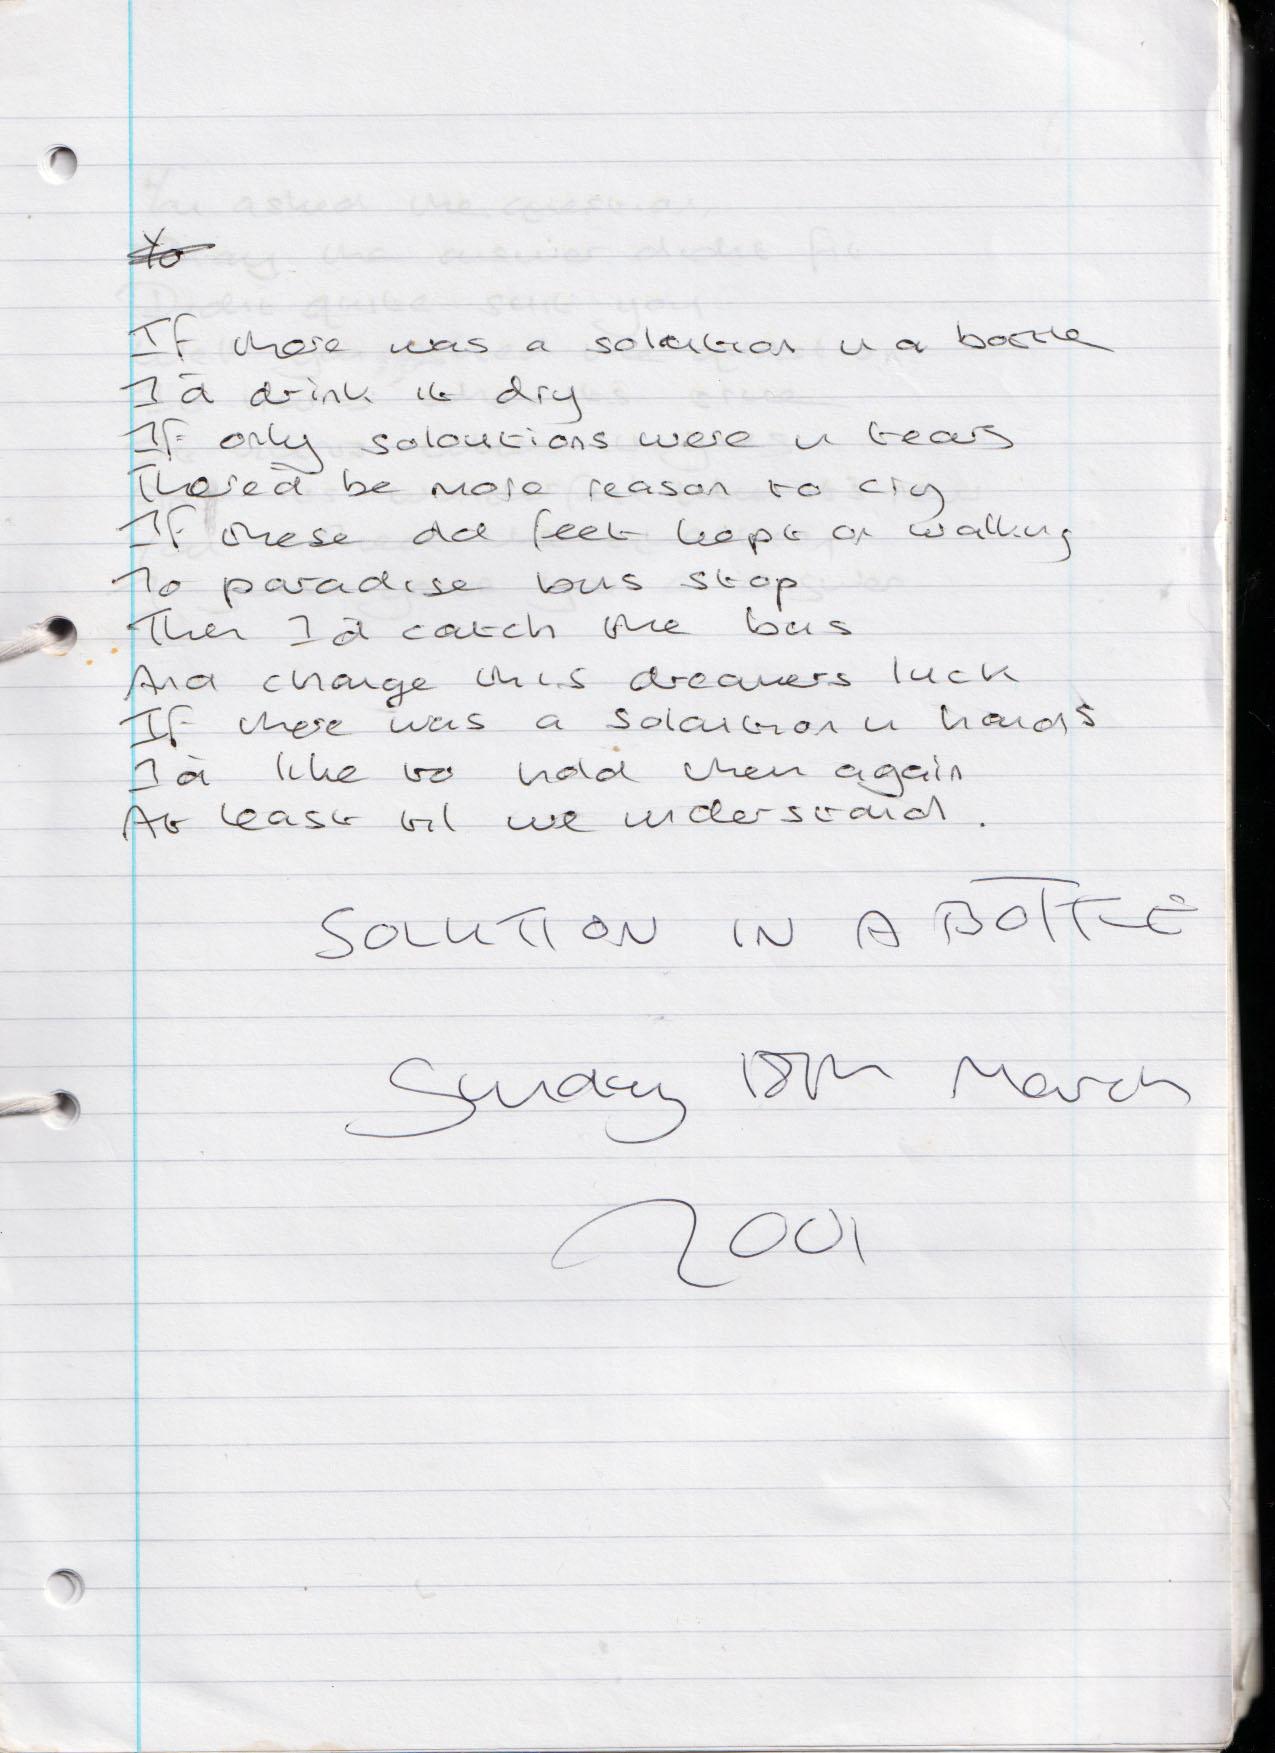 Yo
If there was a solution in a bottle
I'd drink it dry
If only soloutions were in tears
There'd be more reason to cry
If these old feet kept on walking
To paradise bus stop
Then I'd catch the bus
And change this dreamers luck
If there was a solution in hands
I'd like to hold them again
At least til we understand.
SOLUTION IN A BOTTLE
Sunday 18th March
2001